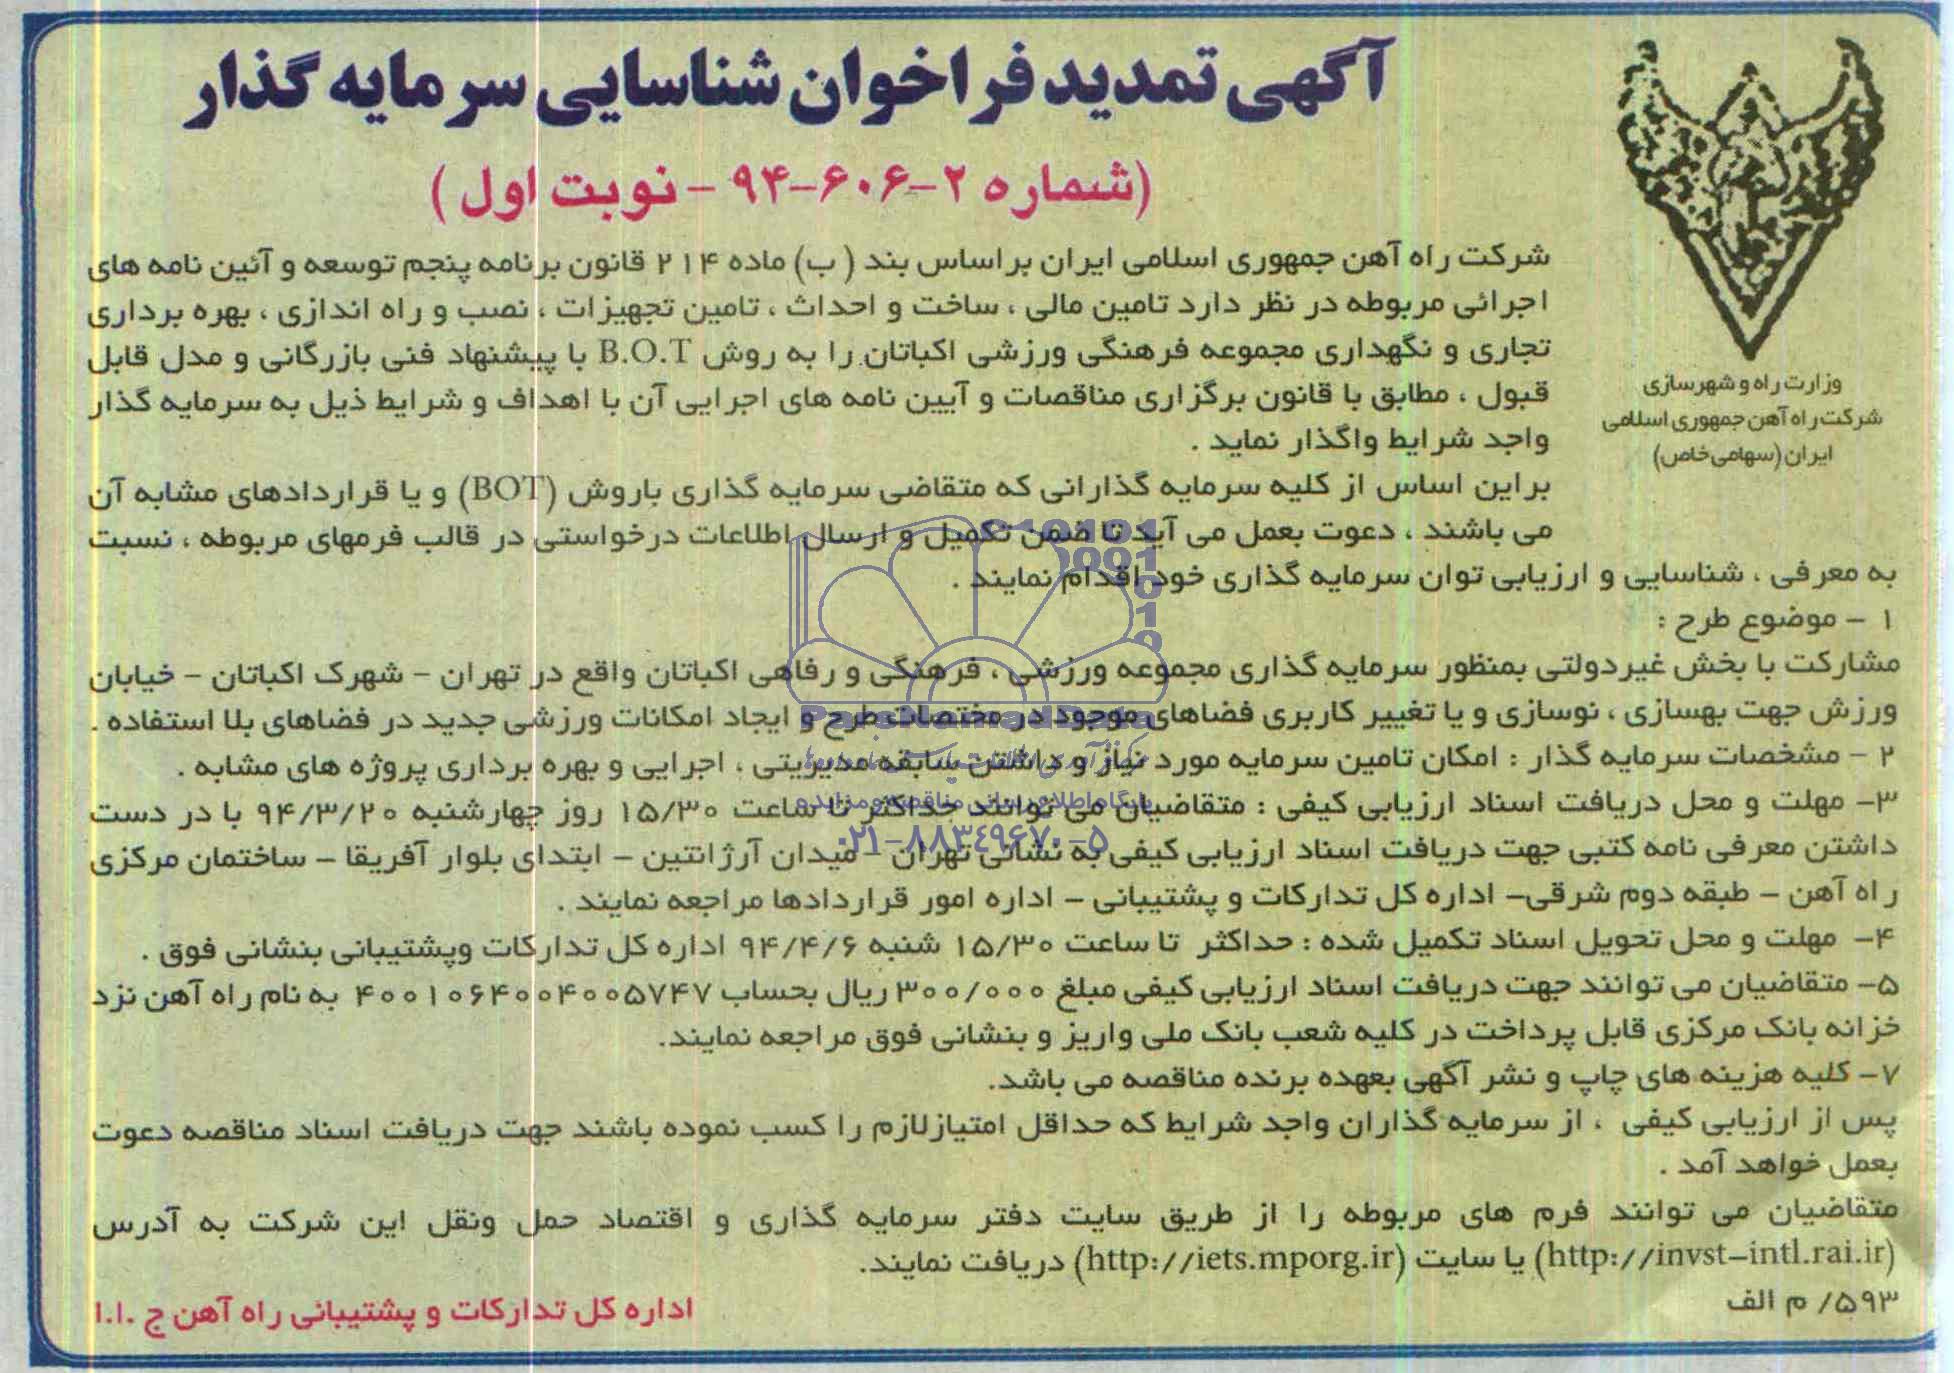 آگهی تمدید فراخوان شناسایی سرمایه گذار
(شماره ۲-۶۰۶-۹۴ - نوبت اول)
وزارت راه و شهرسازی
شرکت راه آهن جمهوری اسلامی
ایران (سهامی خاص)
شرکت راه آهن جمهوری اسلامی ایران براساس بند (ب) ماده ۲۱۴ قانون برنامه پنجم توسعه و آئین نامه های
اجرائی مربوطه در نظر دارد تامین مالی ، ساخت و احداث ، تامین تجهیزات ، نصب و راه اندازی ، بهره برداری
تجاری و نگهداری مجموعه فرهنگی ورزشی اکباتان را به روش B.O.T با پیشنهاد فنی بازرگانی و مدل قابل
قبول ، مطابق با قانون برگزاری مناقصات و آیین نامه های اجرایی آن با اهداف و شرایط ذیل به سرمایه گذار
واجد شرایط واگذار نماید .
براین اساس از کلیه سرمایه گذارانی که متقاضی سرمایه گذاری باروش (BOT) و یا قراردادهای مشابه آن
می باشند ، دعوت بعمل می آید تا ضمن تکمیل و ارسال اطلاعات درخواستی در قالب فرمهای مربوطه ، نسبت
به معرفی ، شناسایی و ارزیابی توان سرمایه گذاری خود اقدام نمایند .
۱ - موضوع طرح :
مشارکت با بخش غیردولتی بمنظور سرمایه گذاری مجموعه ورزشی ، فرهنگی و رفاهی اکباتان واقع در تهران - شهرک اکباتان - خیابان
ورزش جهت بهسازی ، نوسازی و یا تغییر کاربری فضاهای موجود در مختصات طرح و ایجاد امکانات ورزشی جدید در فضاهای بلا استفاده .
۲ - مشخصات سرمایه گذار : امکان تامین سرمایه مورد نیاز و داشتن سابقه مدیریتی ، اجرایی و بهره برداری پروژه های مشابه .
۳- مهلت و محل دریافت اسناد ارزیابی کیفی : متقاضیان می توانند حداکثر تا ساعت ۱۵/۳۰ روز چهارشنبه ۹۴/۳/۲۰ با در دست
داشتن معرفی نامه کتبی جهت دریافت اسناد ارزیابی کیفی به نشانی تهران - میدان آرژانتین - ابتدای بلوار آفریقا - ساختمان مرکزی
راه آهن - طبقه دوم شرقی- اداره کل تدارکات و پشتیبانی - اداره امور قراردادها مراجعه نمایند .
۴- مهلت و محل تحویل اسناد تکمیل شده : حداکثر تا ساعت ۱۵/۳۰ شنبه ۹۴/۴/۶ اداره کل تدارکات وپشتیبانی بنشانی فوق .
۵- متقاضیان می توانند جهت دریافت اسناد ارزیابی کیفی مبلغ ۳۰۰/۰۰۰ ریال بحساب ۴۰۰۱۰۶۴۰۰۴۰۰۵۷۴۷ به نام راه آهن نزد
خزانه بانک مرکزی قابل پرداخت در کلیه شعب بانک ملی واریز و بنشانی فوق مراجعه نمایند.
۷- کلیه هزینه های چاپ و نشر آگهی بعهده برنده مناقصه می باشد.
پس از ارزیابی کیفی ، از سرمایه گذاران واجد شرایط که حداقل امتیازلازم را کسب نموده باشند جهت دریافت اسناد مناقصه دعوت
بعمل خواهد آمد .
متقاضیان می توانند فرم های مربوطه را از طریق سایت دفتر سرمایه گذاری و اقتصاد حمل ونقل این شرکت به آدرس
(http://invst-intl.rai.ir) یا سایت (http://iets.mporg.ir) دریافت نمایند.
۵۹۳/ م الف
اداره کل تدارکات و پشتیبانی راه آهن ج .ا.ا
پایگاه اطلاع رسانی مناقصه و مزایده
۰۲۱-۸۸۳۴۹۶۷۰-۵